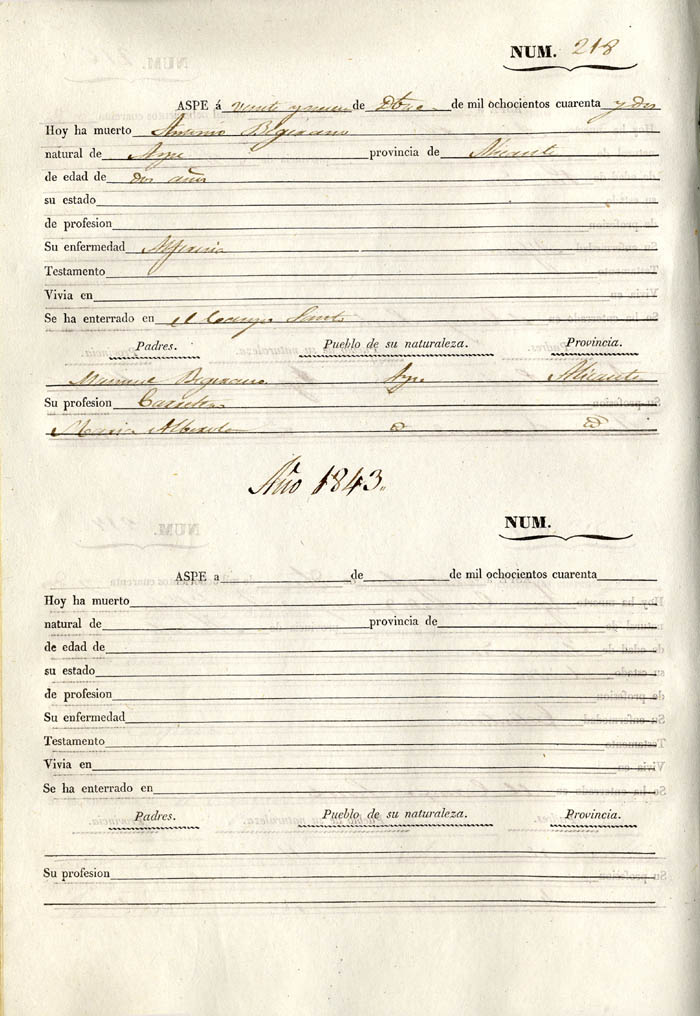 NUM. 218
ASPE á veinte y nueve de Dbre de mil ochocientos cuarenta y dos
Hoy ha muerto Antonio
natural de Aspe provincia de Alicante
de edad de dos años
su estado
de profesion
Su enfermedad Alferecia
Testamento
Vivia en
Se ha enterrado en el Campo Santo
Padres. Pueblo de su naturaleza. Provincia.
Manuel Aspe Alicante
Su profesion
Maria Alberola
Año 1843.
NUM.
ASPE a de de mil ochocientos cuarenta
Hoy ha muerto
natural de provincia de
de edad de
su estado
de profesion
Su enfermedad
Testamento
Vivia en
Se ha enterrado en
Padres. Pueblo de su naturaleza. Provincia.
Su profesion